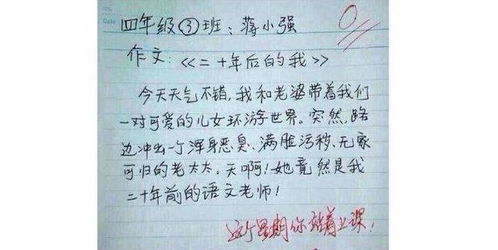 四年级③班:蒋小强
0
作文:<<二十年后的我>>
今天天气不错,我和老婆带着我们
一对可爱的儿女环游世界。突然,路
边冲出一个浑身恶臭、满脸污秽、无家
可归的老太太。天啊!她竟然是我
二十年前的语文老师!
这个星期你站着上课!